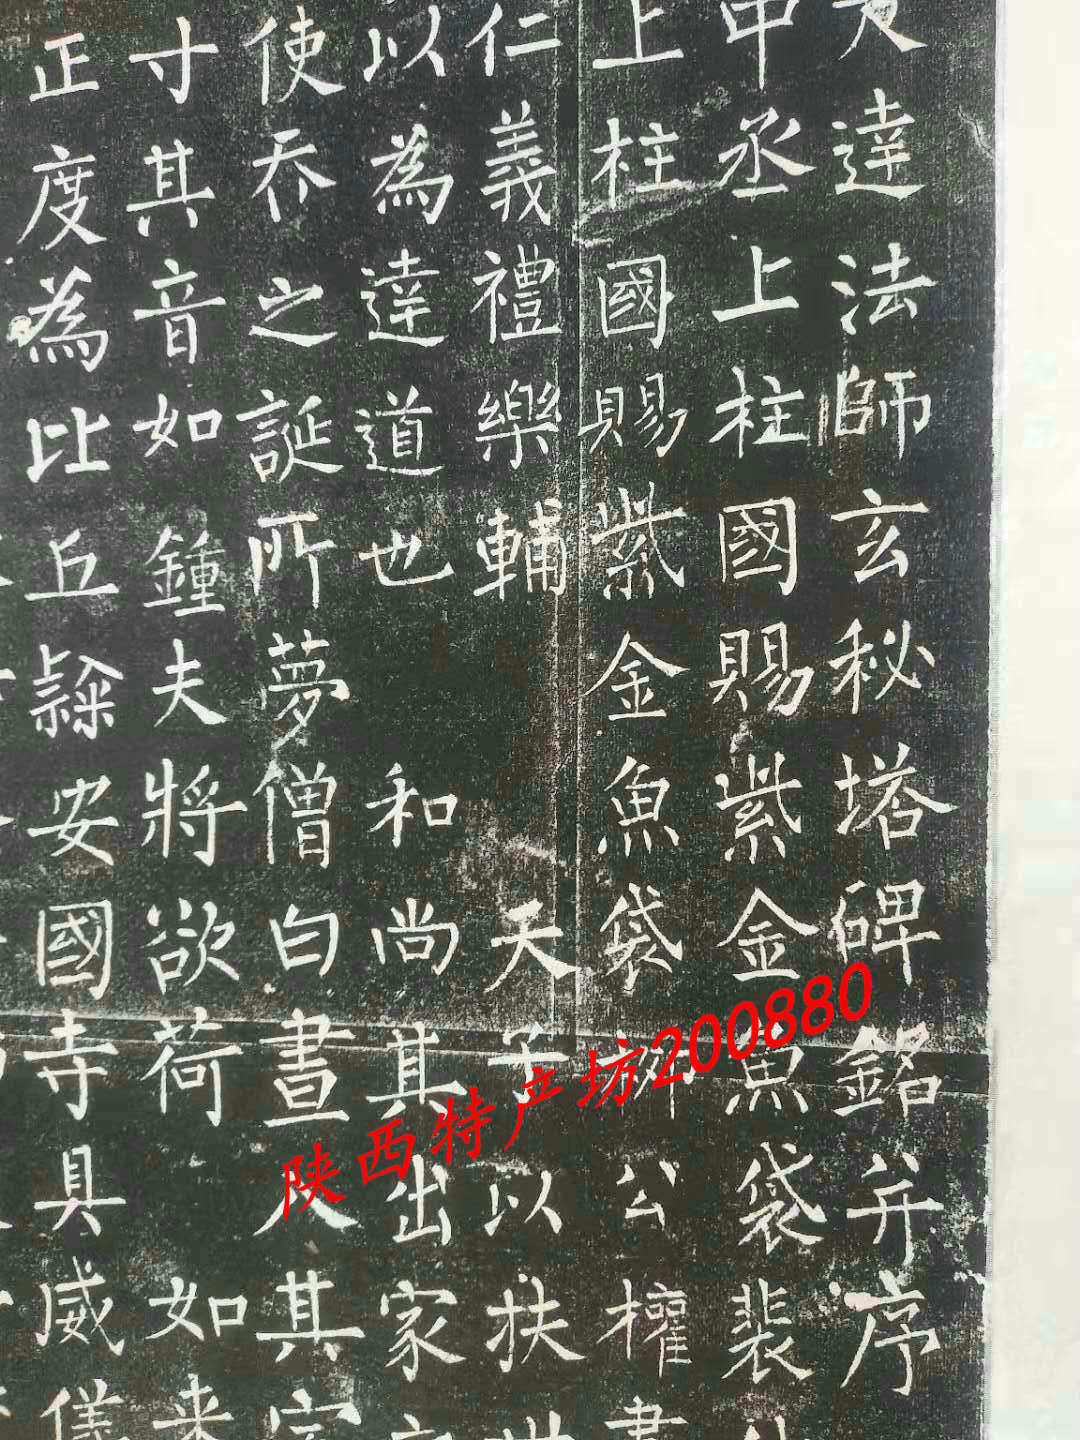 大達法師玄秘塔碑銘并序
中丞上柱國賜紫金魚袋裴
上柱國賜紫金魚袋柳公權書
仁義禮樂輔 天子以扶世
以為達道也 和尚其出家
使吞之誕所夢僧白晝入其室
寸其音如鍾夫將欲荷 如來
正度為比丘隸安國寺具威儀
陕西特产坊200880